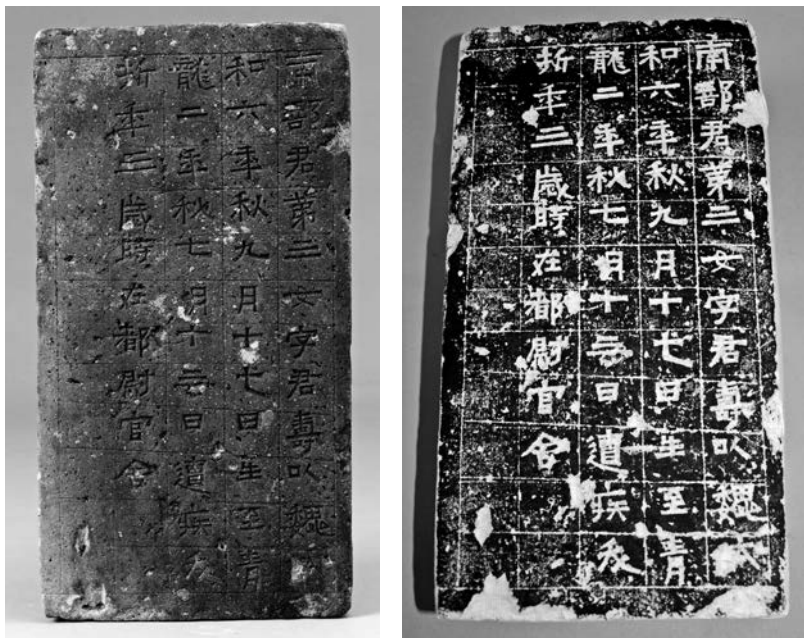 南部君第三女字君壽以魏大
和六年秋九月十七日生至青
龍二年秋七月十三日遭疾夭
折年三歲時在都尉官舍
南部君第三女字君壽以魏大
和六年秋九月十七日生至青
龍二年秋七月十三日遭疾夭
折年三歲時在都尉官舍